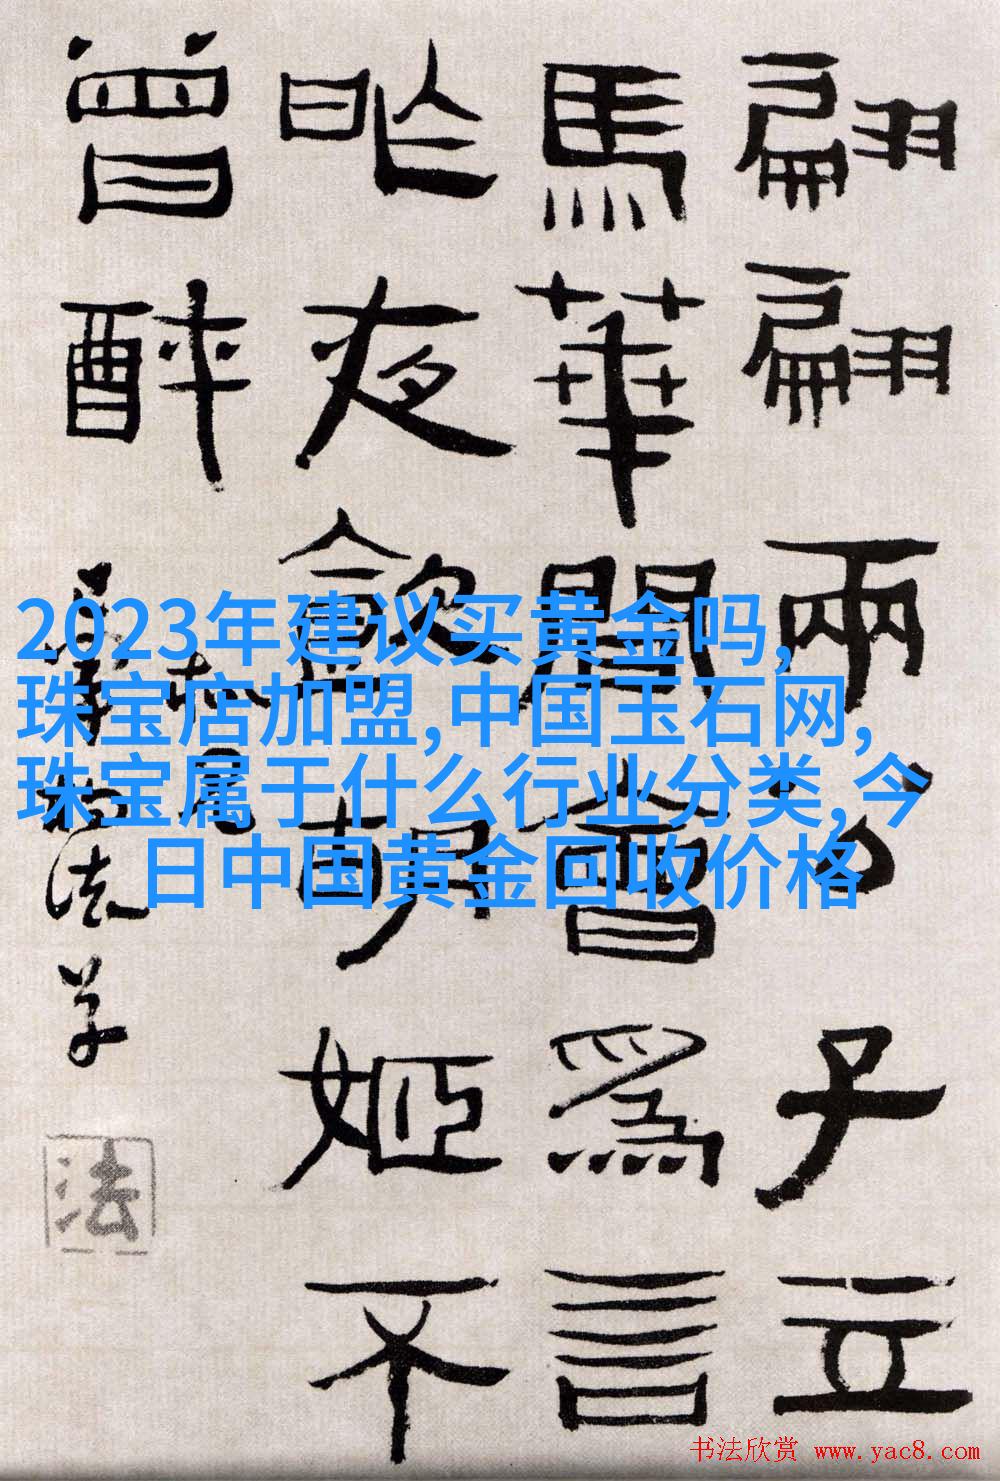 翩翩兩公子立
馬華間會爲言
昨夜飲胡姬不
曾醉
法
2023年建议买黄金吗,
珠宝店加盟,中国玉石网,
珠宝属于什么行业分类,今
日中国黄金回收价格
书法欣赏 www.yac8.com